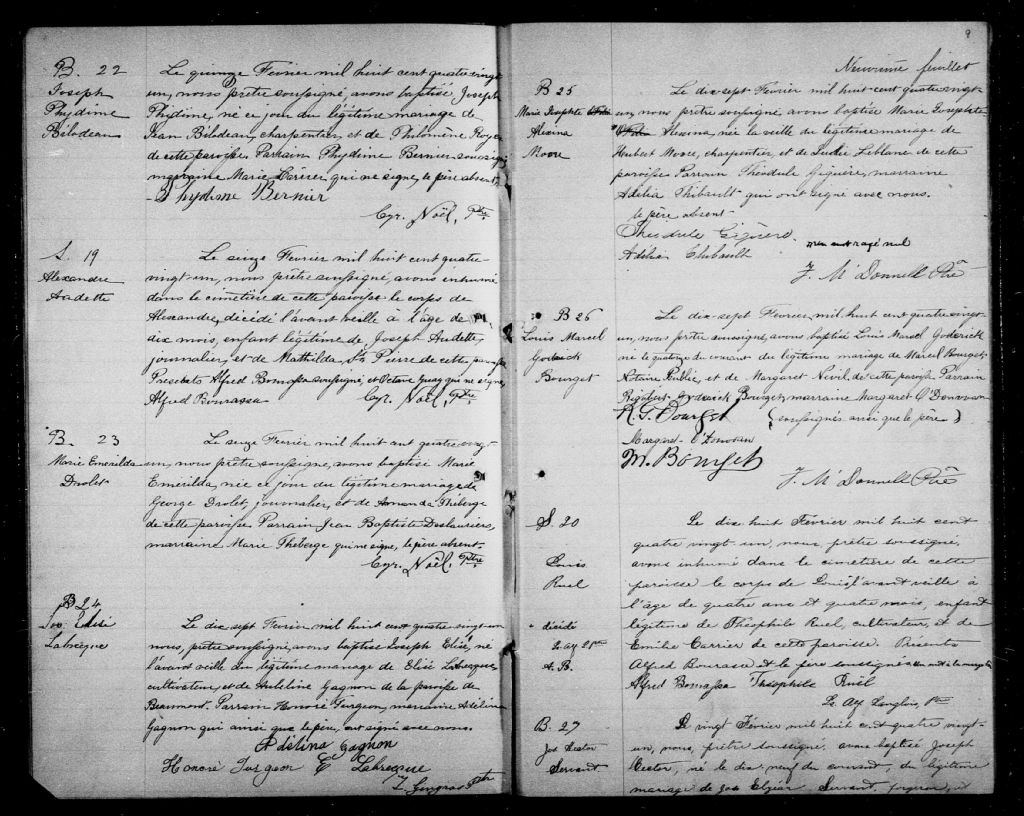 B. 22
Joseph
Phydime
Bilodeau
Le quinze Février mil huit cent quatre vingt
un, nous prêtre soussigné, avons baptisé Joseph
Phydime, né ce jour du légitime mariage de
Jean Bilodeau, charpentier, et de Philomène Roy
de cette paroisse. Parrain Phydime Bernier soussigné
marraine Marie qui ne signe, le père absent.
Phydime Bernier
Cyr. Noël, Ptre
S. 19
Alexandre
Audette
Le seize Février mil huit cent quatre
vingt-un, nous prêtre soussigné, avons inhumé
dans le cimetière de cette paroisse le corps de
Alexandre, décédé l'avant veille à l'âge de
dix mois, enfant légitime de Joseph Audette,
journalier, et de Mathilda St Pierre de cette paroisse
Présents Alfred Bourassa soussigné, et Octave Guay qui ne signe
Alfred Bourassa Cyr. Noël, Ptre
B. 23
Marie Emérilda
Drolet
Le seize Février mil huit cent quatre vingt
un, nous, prêtre soussigné, avons baptisé Marie
Emérilda, née ce jour du légitime mariage de
George Drolet, journalier, et de Amanda Théberge
de cette paroisse. Parrain Jean Baptiste Deslauriers,
marraine Marie Theberge qui ne signe, le père absent.
Cyr. Noël, Ptre
B 24
Jos: Elisé
Labrecque
Le dix sept Février mil huit cent quatre vingt un
nous, prêtre soussigné, avons baptisé Joseph Elisé, né
l'avant veille du légitime mariage de Elisé Labrecque
cultivateur, et de Adéline Gagnon de la paroisse de
Beaumont. Parrain Honoré Turgeon, marraine Adélina
Gagnon qui ainsi que le père, ont signé avec nous.
Adélina Gagnon
Honoré Turgeon E Labrecque
Gingras Ptre
9
Neuvième feuillet
B 25
Marie Josephte
Alexina
Moore
Le dix sept Février mil huit cent quatre vingt
un, nous prêtre soussigné avons baptisé Marie Josephte
Alexina, née la veille du légitime mariage de
Hubert Moore, charpentier, et de Leblanc de cette
paroisse Parrain Théodule Giguère, marraine
Adélia Thibault qui ont signé avec nous.
le père absent.
Theodule Giguere
Adélia Thibault mot rayé nul
J. McDonnell Ptre
B 26
Louis Marcel
Goderick
Bourget
Le dix-sept Février, mil huit cent quatre vingt-
un, nous prêtre soussigné, avons baptisé Louis Marcel Goderick
né le quatorze du courant du légitime mariage de Marcel Bourget
Notaire Public, et de Margaret Nevil de cette paroisse Parrain
Rigobert Goderick Bourget, marraine Margaret O'Donovan
(soussignés ainsi que le père)
R. G. Bourget
Margaret O'Donovan
M. Bourget
J. McDonnell Ptre
S. 20
Louis
Ruel
décédé
A. B.
Le dix huit Février mil huit cent
quatre vingt-un, nous, prêtre soussigné,
avons inhumé dans le cimetière de cette
paroisse le corps de Louis, l'avant veille à
l'âge de quatre ans et quatre mois, enfant
légitime de Théophile Ruel, cultivateur, et de
Emilie Carrier de cette paroisse. Présents
Alfred Bourassa & le père soussignés
Alfred Bourassa Théophile Ruel
Ls. Alf Langlois, Ptre
B. 27
Jos Nestor
Servant
Le vingt Février, mil huit cent quatre vingt-
un, nous, prêtre soussigné, avons baptisé Joseph
Nestor, né le dix neuf du courant, du légitime
mariage de Jos Elzéar Servant, forgeron, et